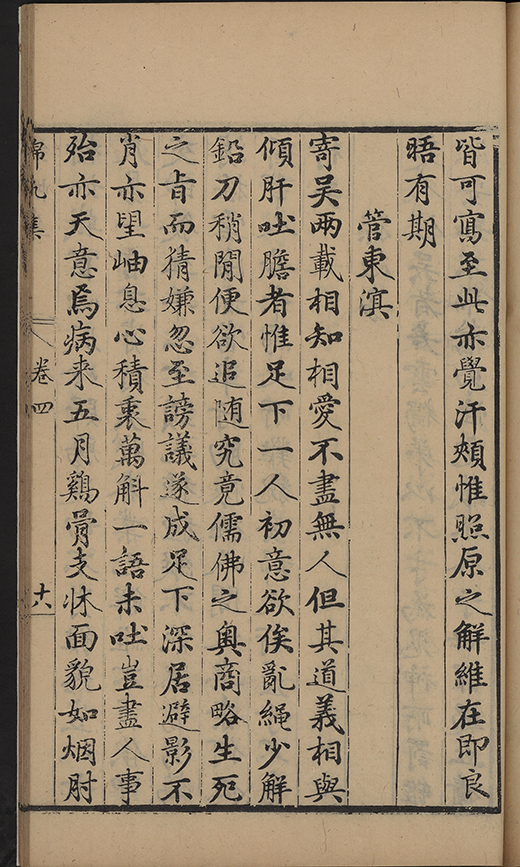 皆可寫至此亦覺汗頰惟照原之解維在即良
晤有期
管東溟
寄吴兩載相知相愛不盡無人但其道義相與
傾肝吐膽者惟足下一人初意欲俟亂繩少解
鉛刀稍閒便欲追随究竟儒佛之奥商略生死
之旨而猜嫌忽至謗議遂成足下深居避影不
肖亦望岫息心積裏萬斛一語未吐豈盡人事
殆亦天意焉病来五月鷄骨支牀面貌如烟肘
錦帆集
卷四
十六